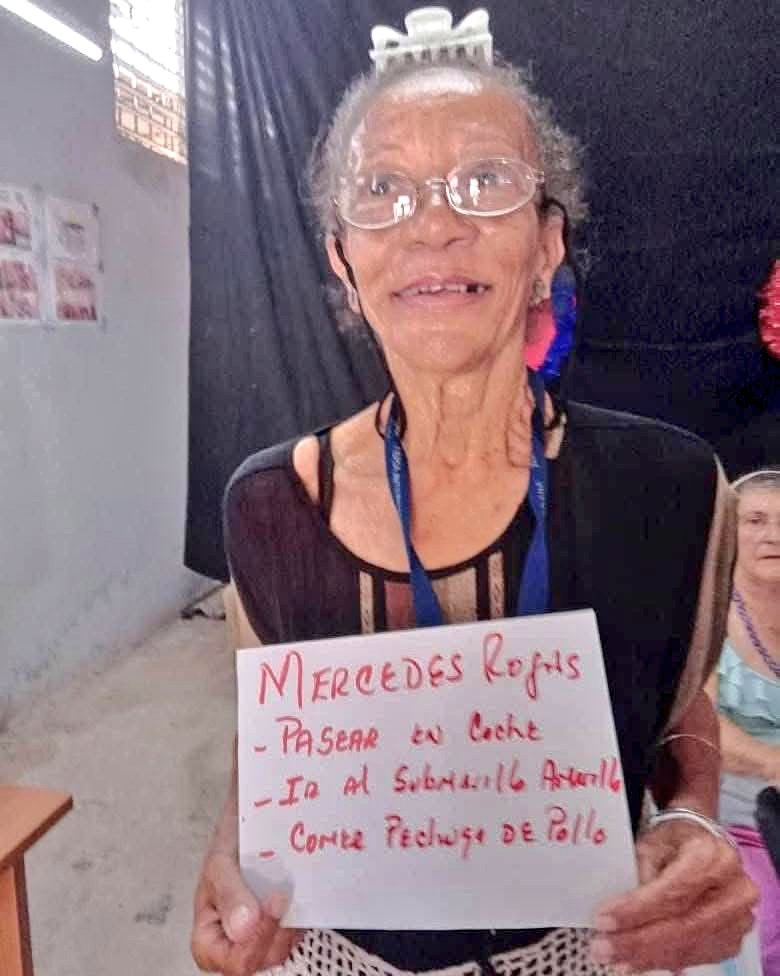 MERCEDES Rojas
- PASEAR en Coche
- IR Al Submarillo Amarillo
- COMER Pechuga DE Pollo